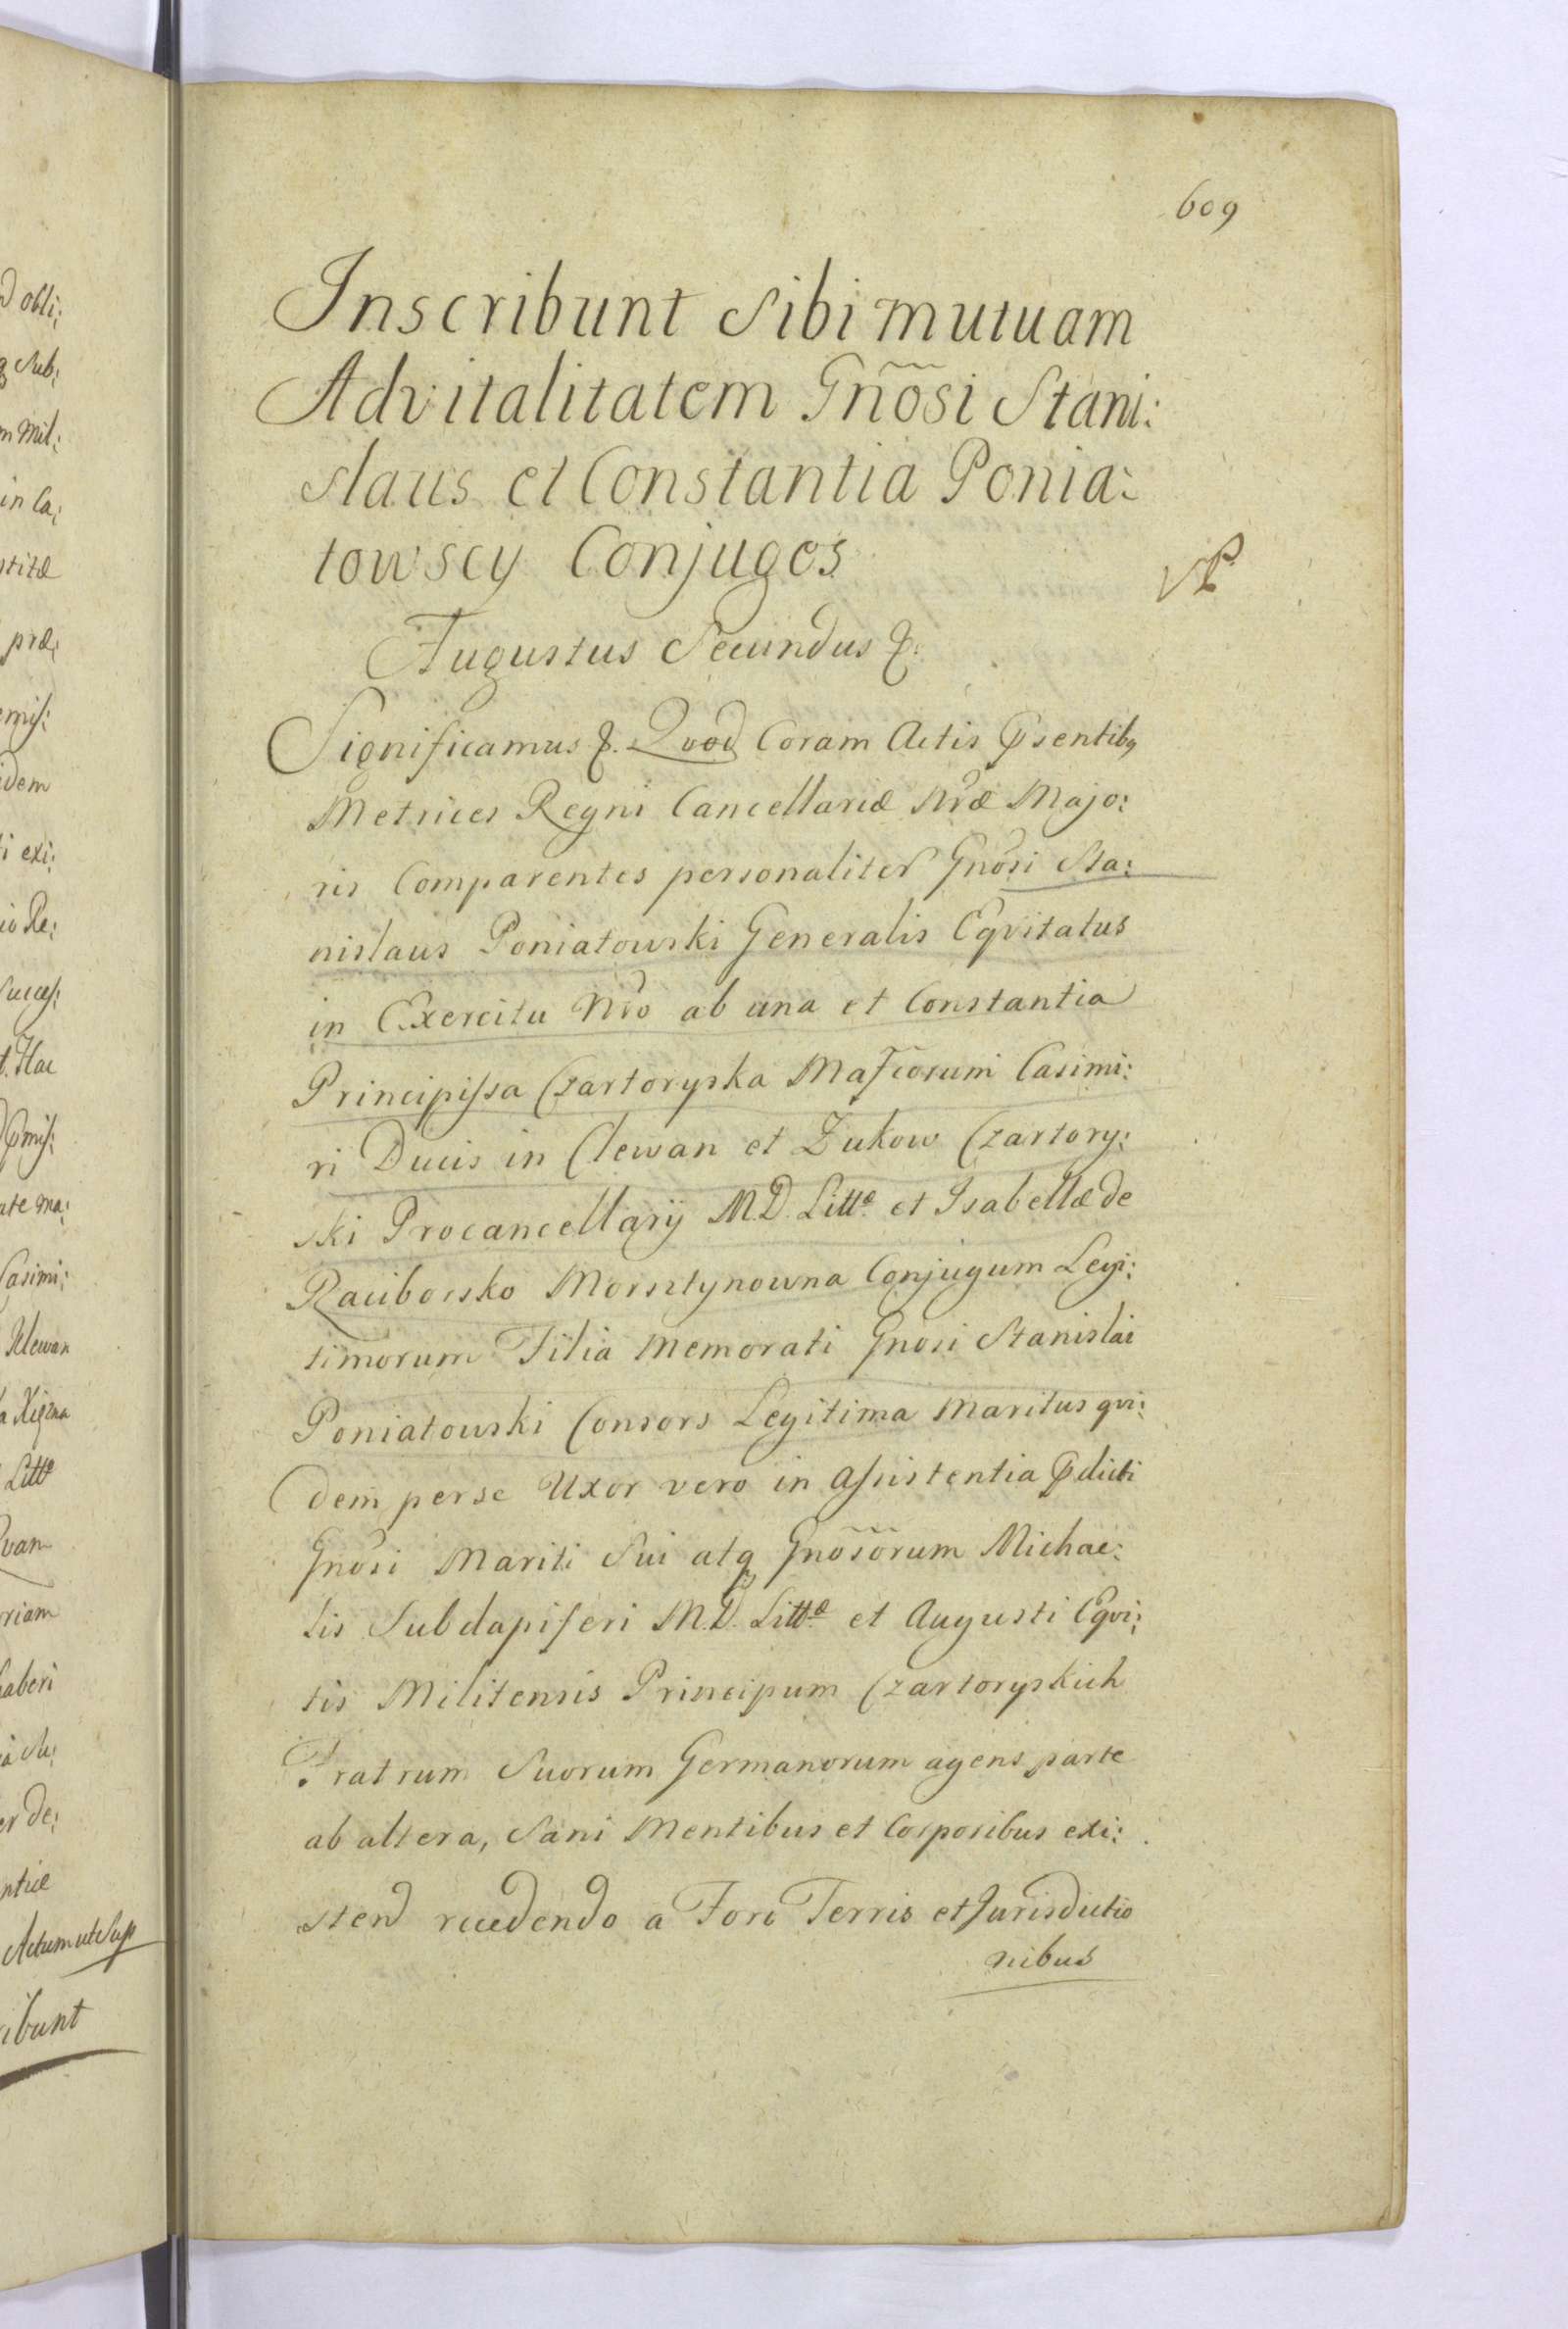 609
Inscribunt Sibi mutuam
Advitalitatem Gñõsi Stani:
slaus et Constantia Ponia:
towscy Conjuges
Augustus Secundus &.
Significamus &. Qvod Coram Actis Psentibq
Metrices Regni Cancellariæ Nræ Majo:
ris Comparentes personaliter Gnosi Sta:
nislaus Poniatowski Generalis Eqvitatus
in Exercitu Nro ab una et Constantia
Principissa Czartoryska Mafcorum Casimi:
ri Ducis in Clewan et Zukow Czartory:
ski Procancellarij M.D. Littæ et Isabellæ de
Raciborsko Morsztynowna Conjugum Legi:
timorum Filia Memorati Gnosi Stanislai
Poniatowski Consors Legitima Maritus qvi:
dem per se Uxor vero in assistentia Pdicti
Gnosi Mariti Sui atq Gnosorum Michae:
lis Subdapiferi M.D. Littæ et Augusti Eqvi:
tis Militensis Principum Czartoryskich
Fratrum Suorum Germanorum agens parte
ab altera, Sani Mentibus et Corporibus exi:
stend recedendo a Fori Terris et Jurisdictio
nibus
d obli:
q Sub:
m Mil:
in Ca:
præ:
idem
i exi:
io Re:
t. Hac
ate ma:
Casimi:
Klewan
Littæ
riam
er de:
Actum ut Sup
ibunt